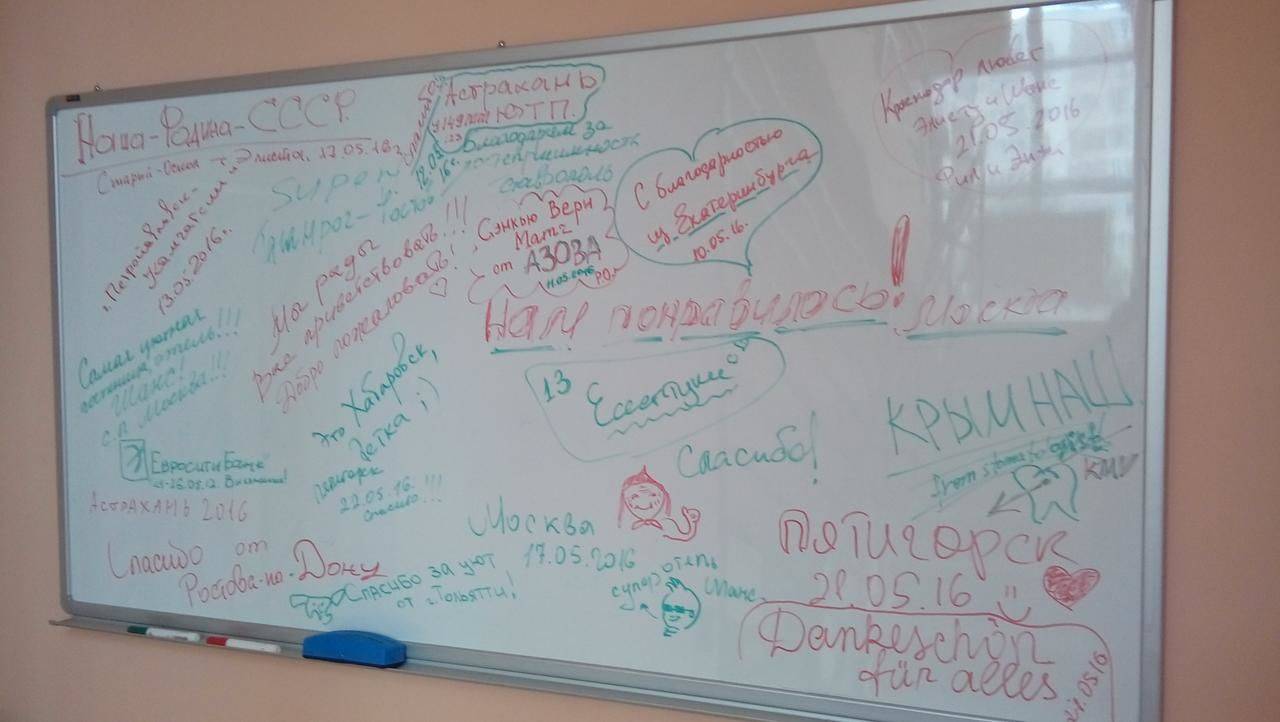 Наша-Родина-СССР.
Старый-Оскол - г. Элиста, 17.05.16г.
Астрахань
ЮТП.
Благодарим за
гостеприимность
Ставрополь
Краснодар любет
Элисту и Шанс
21.05.2016
SUPER
Таганрог-Ростов
г. Петропавловск-
Камчатский
13.05.2016г.
Мы рады
Вас приветствовать!!!
Добро пожаловать!
Сэнкью Вери
Матч
от АЗОВА
11.05.2016 РО.
С благодарностью
из Екатеринбурга
10.05.16.
Нам понравилось! Москва
Самая уютная
гостиница, отель!!!
Шанс!
с.п. Москва!!!
Это Хабаровск,
детка ;)
Пятигорск
22.05.16.
Спасибо!!!
13 Ессентуки
КРЫМ НАШ
from stomatologist
КМV
Спасибо!
ЕвроситиБанк
АСТРАХАНЬ 2016
Спасибо от
Ростова-на-Дону
Москва
17.05.2016
Спасибо за уют
от г. Тольятти!
супер отель
Шанс.
ПЯТИГОРСК
21.05.16
Dankeschön
für alles
21.05.16